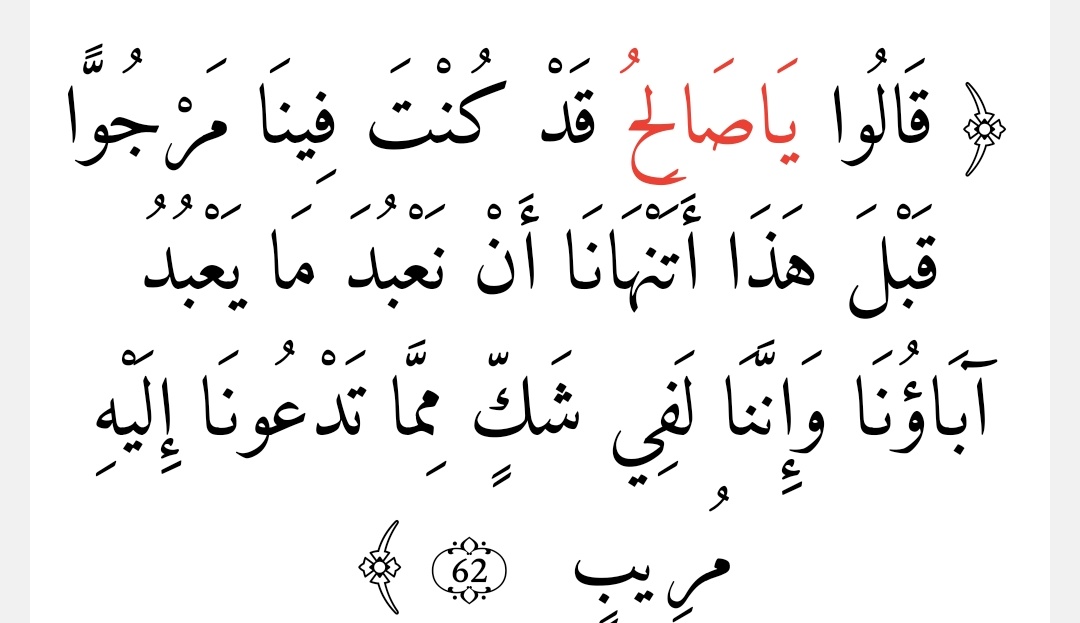 ﴿ قَالُوا يَاصَالِحُ قَدْ كُنْتَ فِينَا مَرْجُوًّا
قَبْلَ هَذَا أَتَنْهَانَا أَنْ نَعْبُدَ مَا يَعْبُدُ
آبَاؤُنَا وَإِنَّنَا لَفِي شَكٍّ مِمَّا تَدْعُونَا إِلَيْهِ
مُرِيبٍ 62 ﴾